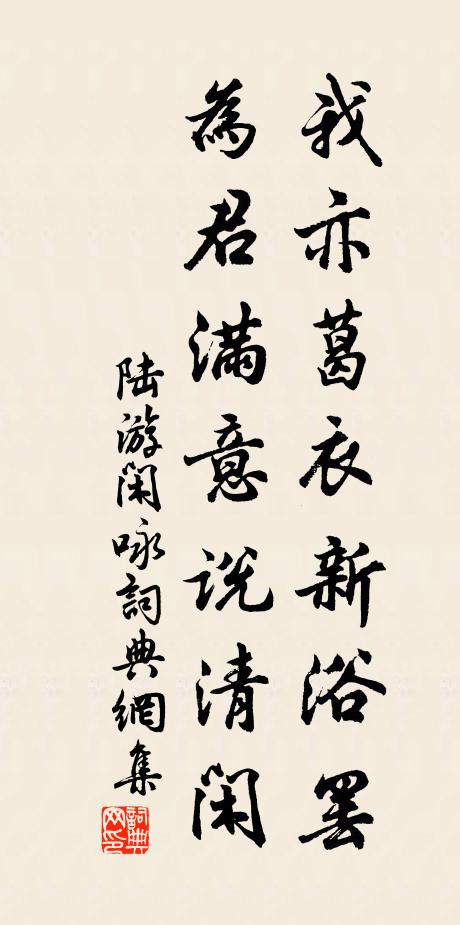 我亦葛衣新浴罢
為君满意説清閑
陆游闲咏詞典網集
詞典
网印